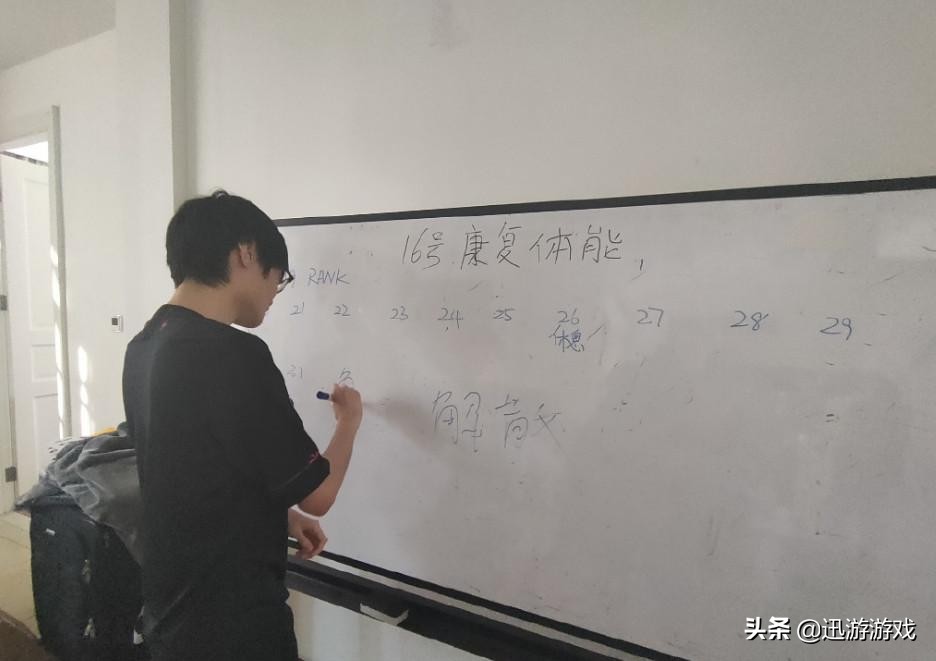 16号.康复体能,
RANK
21 22 23 24 25 26 27 28 29
休息
31
解散
头条 @迅游游戏